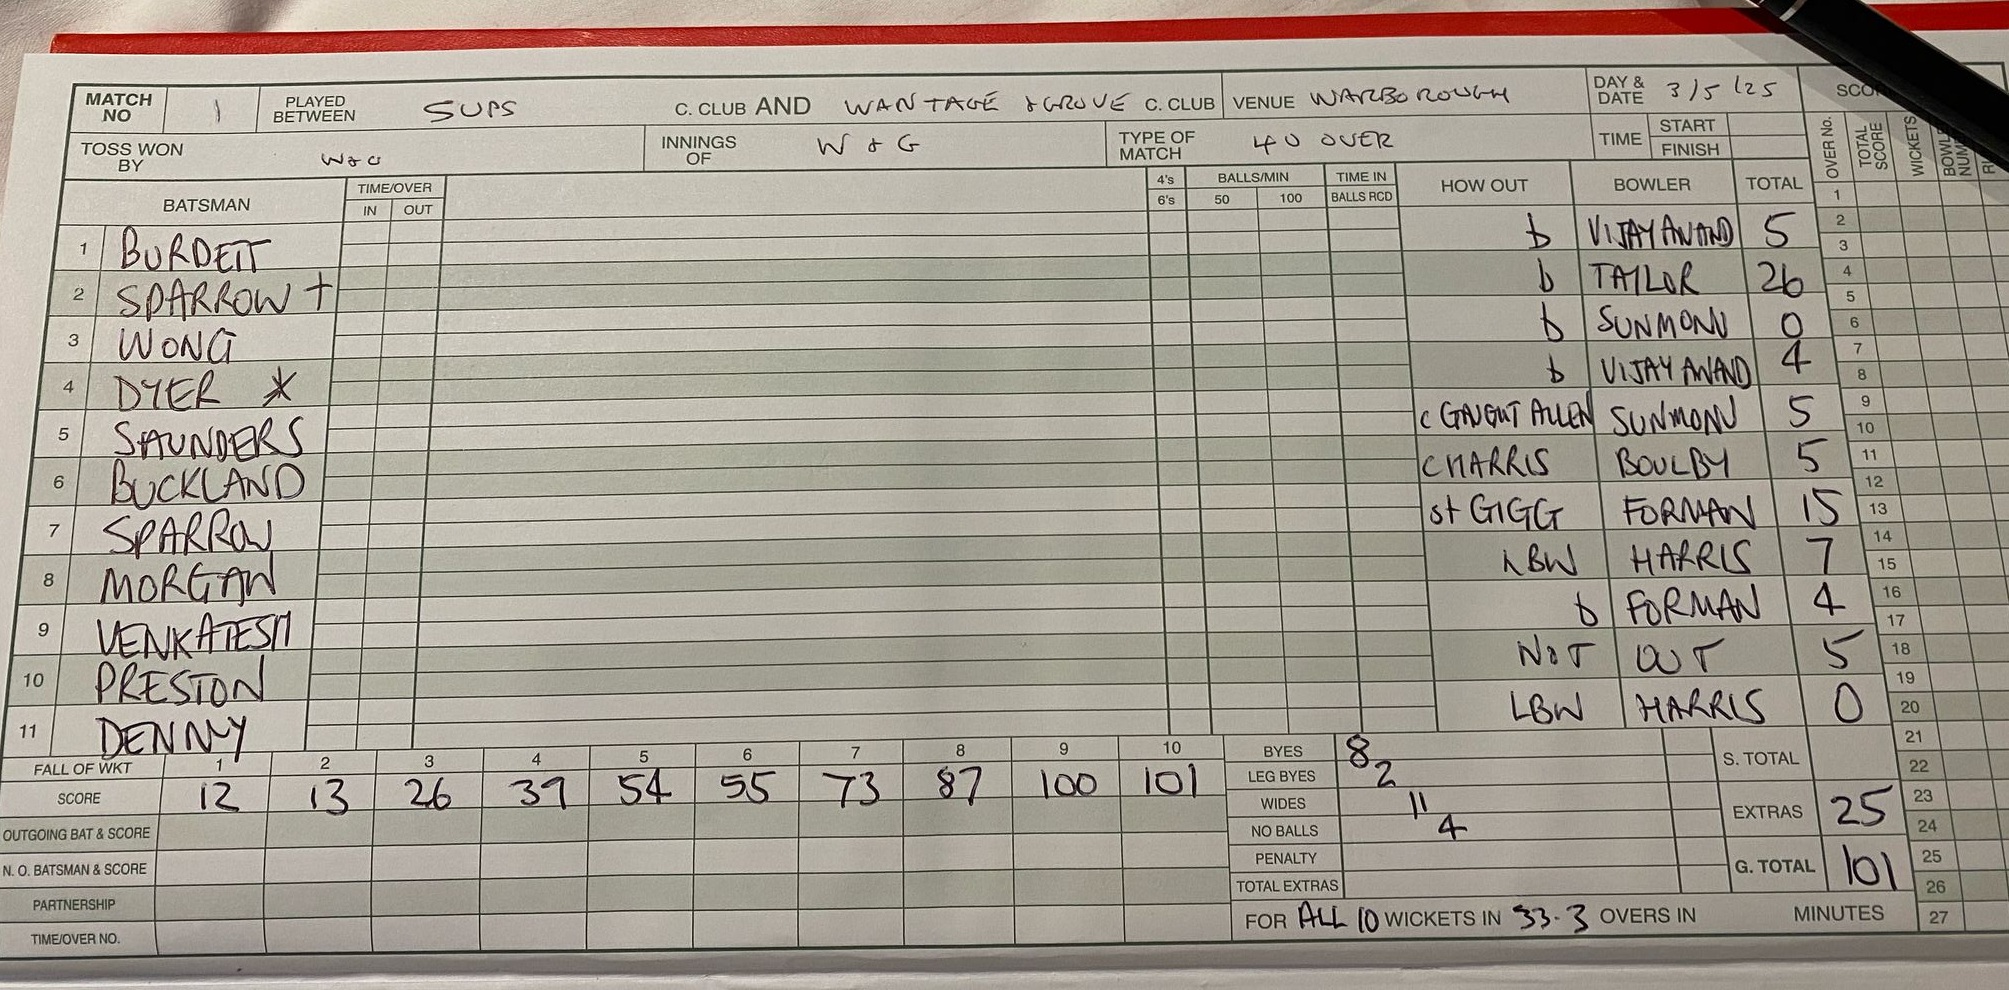 MATCH NO 1 PLAYED BETWEEN SUPS C. CLUB AND WANTAGE & GROVE C. CLUB VENUE WARBOROUGH DAY & DATE 3/5/25
TOSS WON BY W&G INNINGS OF W & G TYPE OF MATCH 40 OVER TIME START FINISH OVER No. TOTAL SCORE WICKETS
BATSMAN TIME/OVER IN OUT 4's 6's BALLS/MIN 50 100 TIME IN BALLS RCD HOW OUT BOWLER TOTAL
1 BURDETT b VIJAYANAND 5
2 SPARROW † b TAYLOR 26
3 WONG b SUNMONU 0
4 DYER * b VIJAYANAND 4
5 SAUNDERS c GAUGHT ALLEN SUNMONU 5
6 BUCKLAND c HARRIS BOULBY 5
7 SPARROW st GIGG FORMAN 15
8 MORGAN LBW HARRIS 7
9 VENKATESH b FORMAN 4
10 PRESTON NOT OUT 5
11 DENNY LBW HARRIS 0
FALL OF WKT 1 2 3 4 5 6 7 8 9 10
SCORE 12 13 26 39 54 55 73 87 100 101
OUTGOING BAT & SCORE
N. O. BATSMAN & SCORE
PARTNERSHIP
TIME/OVER NO.
BYES 8
LEG BYES 2
WIDES 11
NO BALLS 4
PENALTY
TOTAL EXTRAS
S. TOTAL
EXTRAS 25
G. TOTAL 101
FOR ALL 10 WICKETS IN 33.3 OVERS IN MINUTES
1
2
3
4
5
6
7
8
9
10
11
12
13
14
15
16
17
18
19
20
21
22
23
24
25
26
27